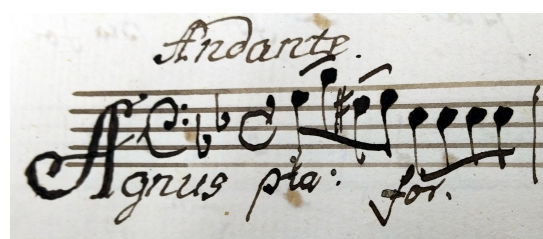 Andante.
Agnus pia: for.